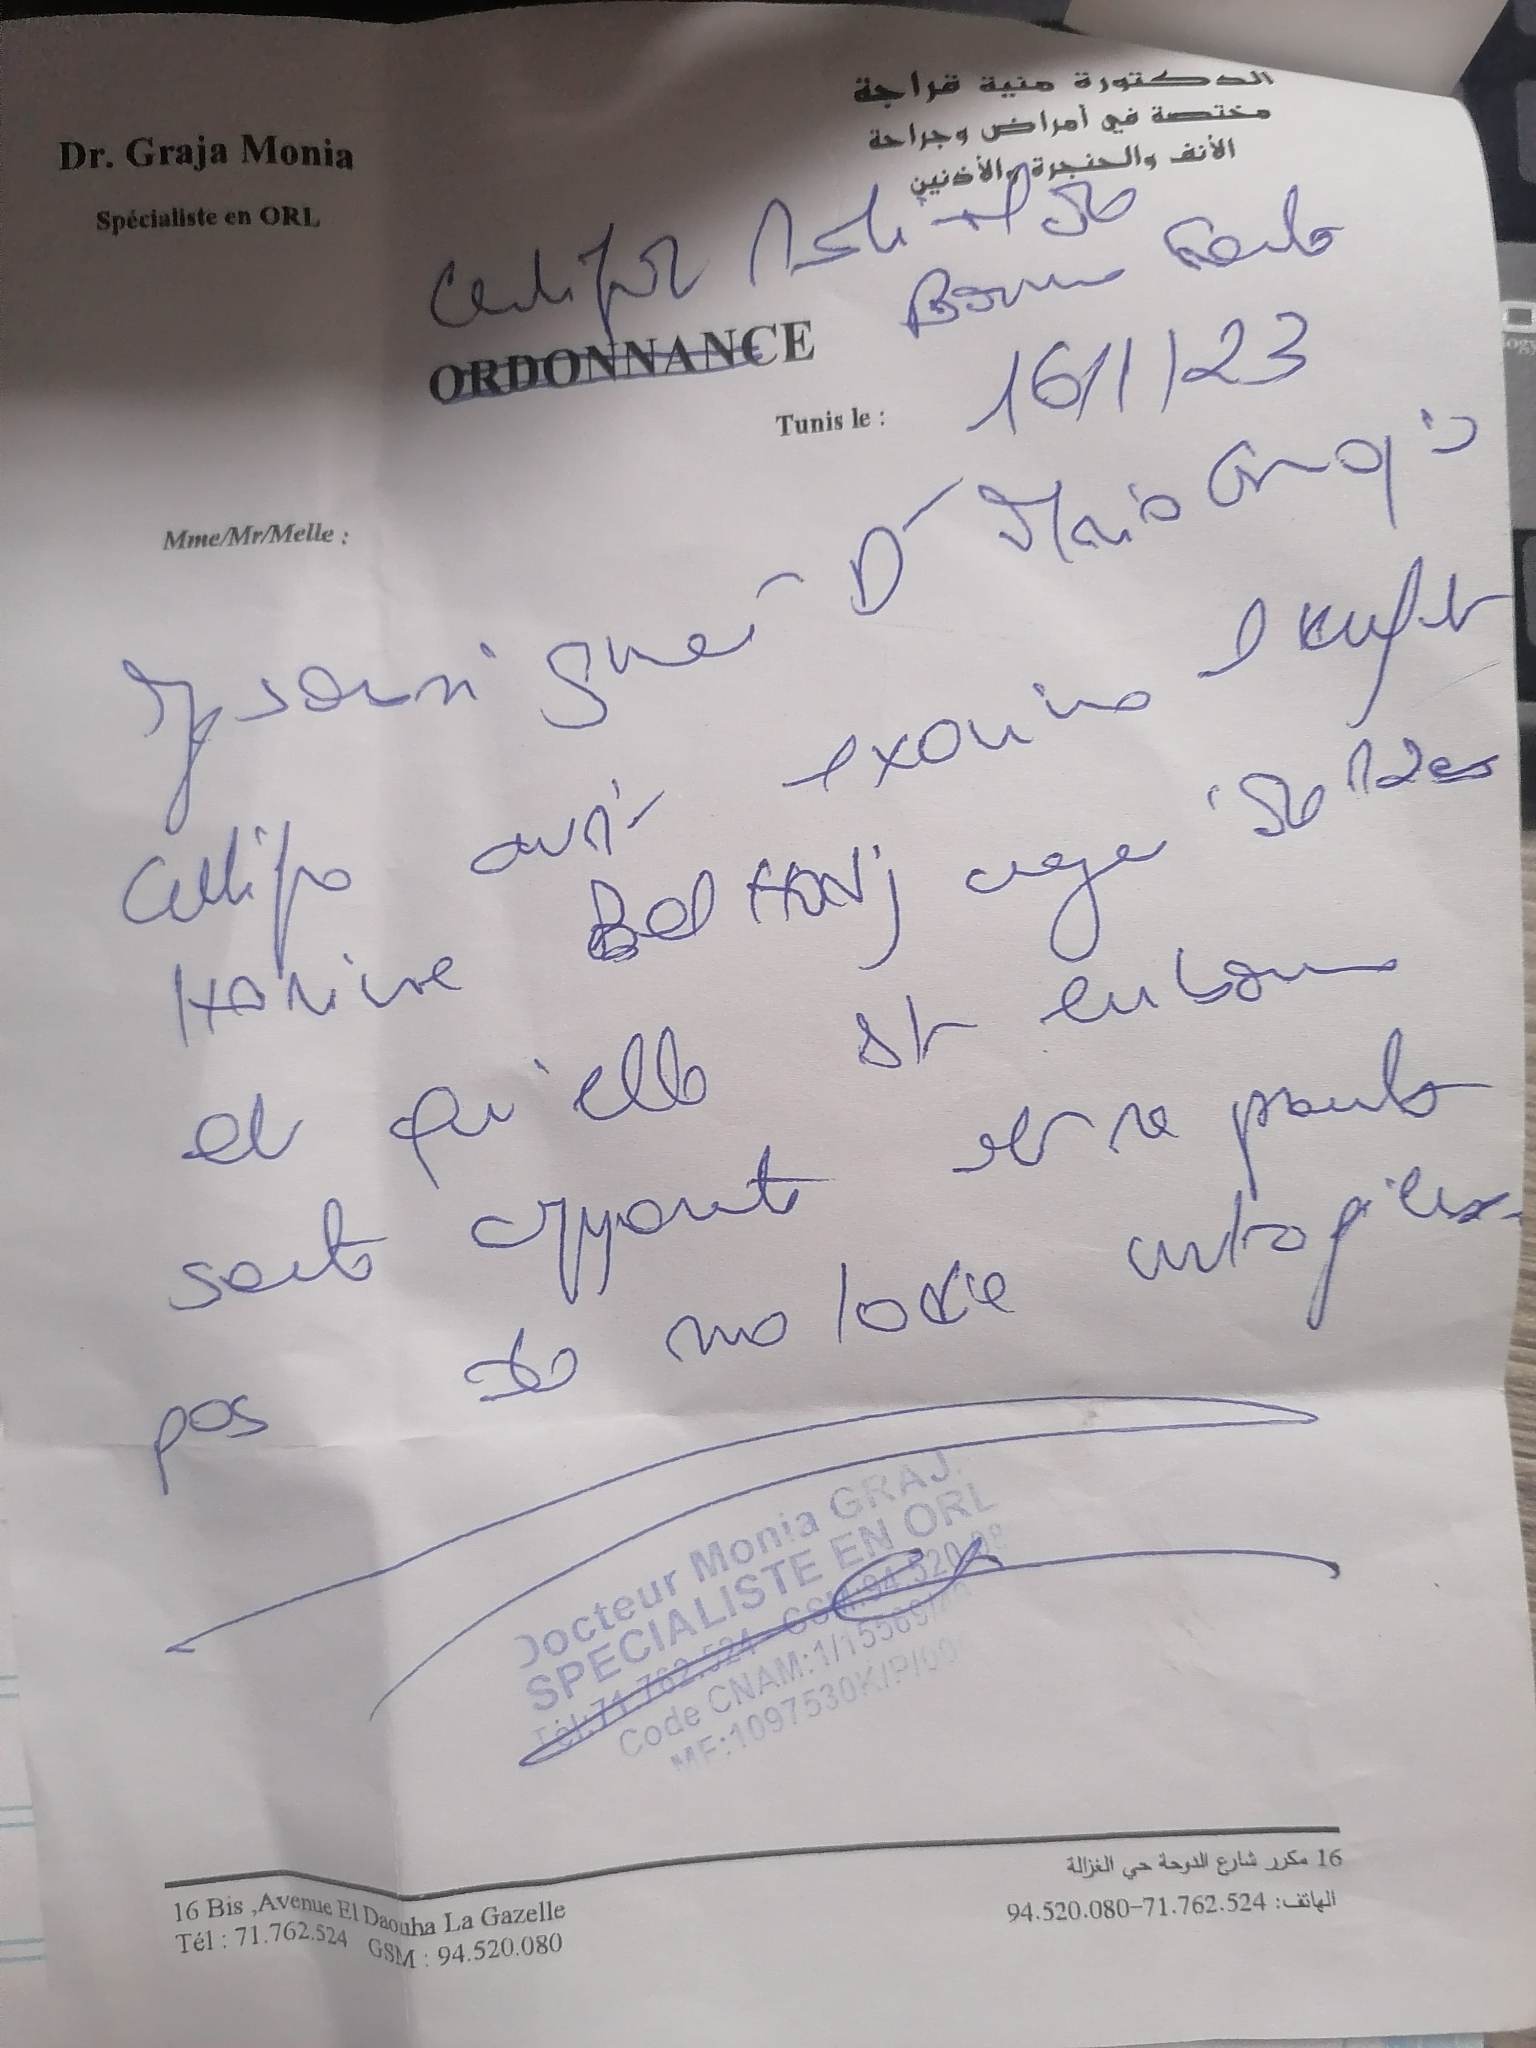 الدكتورة منية قراجة
مختصة في أمراض وجراحة
الأنف والحنجرة والأذنين
Dr. Graja Monia
Spécialiste en ORL
Bonne santé
ORDONNANCE
Tunis le : 16/1/23
Mme/Mr/Melle :
soussigné Dr Monia Graja
certifie avoir examiné l'enfant
âgée de 12 ans
et qu'elle est en bonne
santé apparente et ne présente
pas de maladie contagieuse
Docteur Monia GRAJ
SPECIALISTE EN ORL
Tél:71.762.524 - GSM:94.520.08
Code CNAM:1/15569/
MF:1097530K/P/00
16 Bis ,Avenue El Daouha La Gazelle
Tél : 71.762.524 GSM : 94.520.080
16 مكرر شارع الدوحة حي الغزالة
الهاتف: 71.762.524-94.520.080